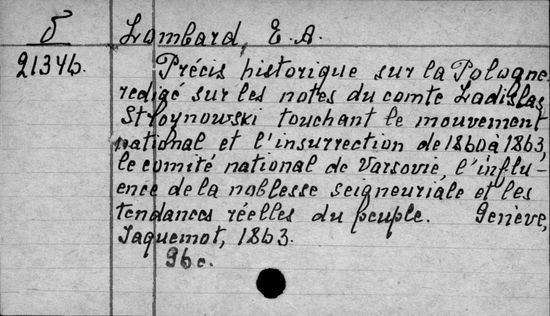 5 Lombard, E. A.
21346. Précis historique sur la Pologne
redigé sur les nottes du comte Ladislas
Stroynowski touchant le mouvement
national et l'insurrection de 1860 à 1863,
le comité national de Varsovie, l'influ-
ence de la noblesse seigneuriale et les
tendances réelles du peuple. Genève,
Jaquemot, 1863.
96 c.